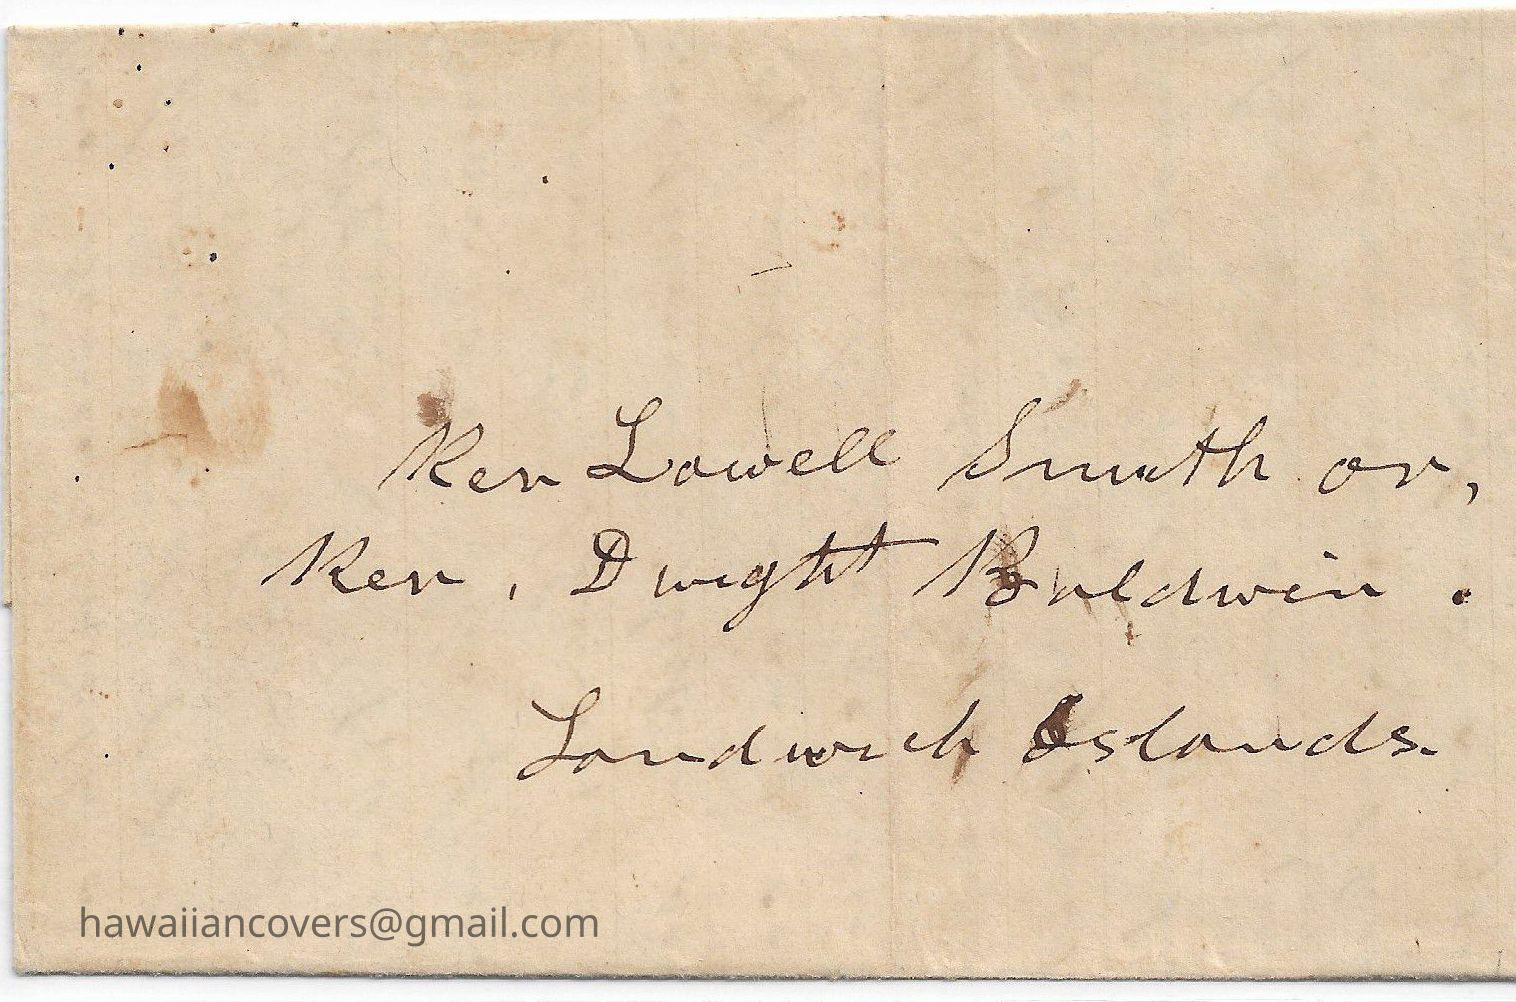 Rev Lowell Smith or,
Rev, Dwight Baldwin.
Sandwich Islands.
hawaiiancovers@gmail.com